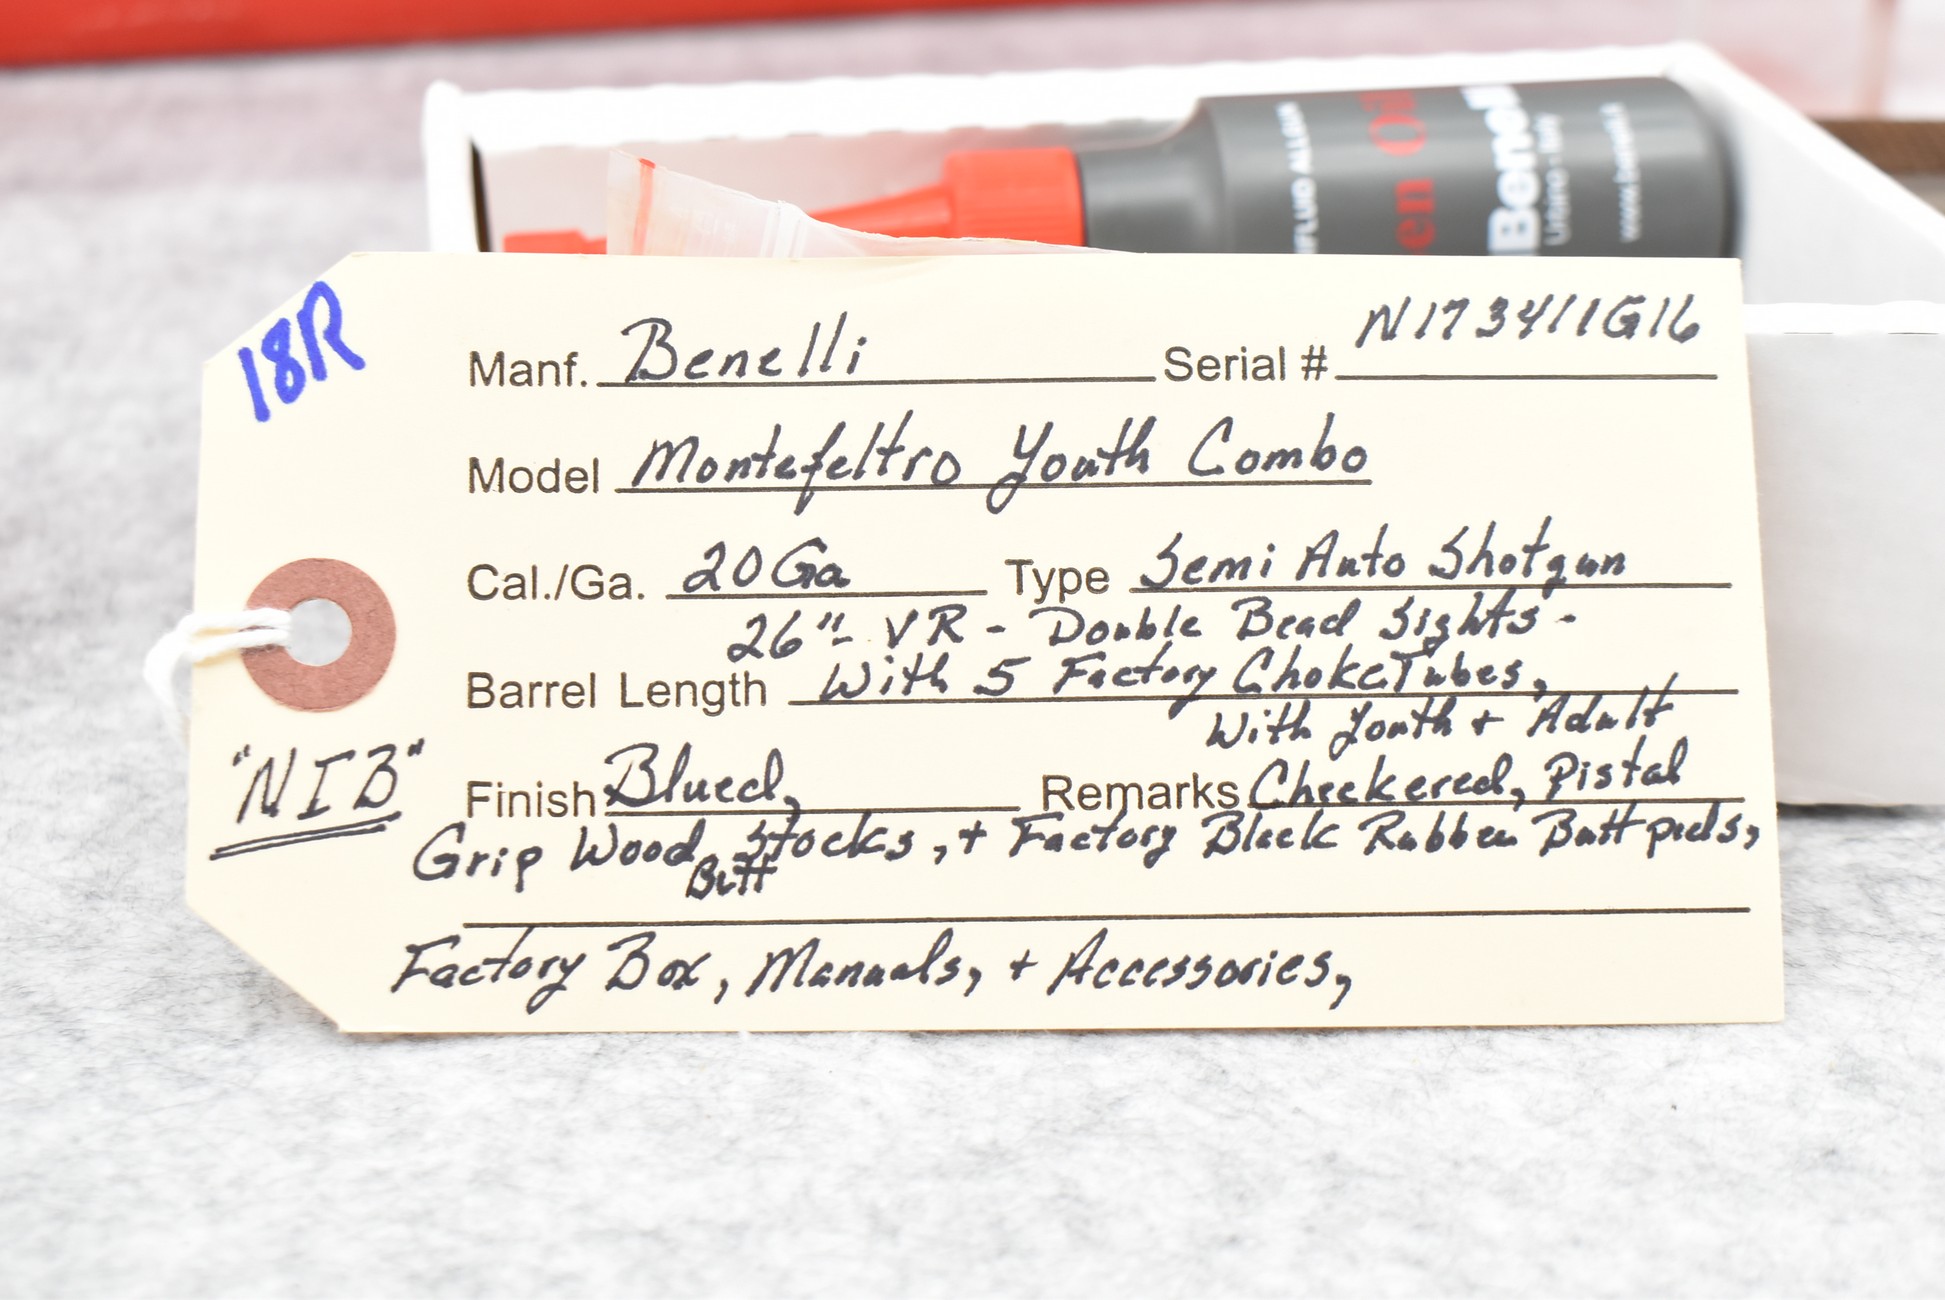 NFLUID ALLGUN
en Oil
Benelli
Urbino - Italy
www.benelli.it
18R
Manf. Benelli Serial # N173411G16
Model Montefeltro Youth Combo
Cal./Ga. 20 Ga Type Semi Auto Shotgun
26"- VR - Double Bead Sights -
Barrel Length With 5 Factory Choke Tubes,
With Youth + Adult
"NIB"
Finish Blued, Remarks Checkered, Pistal
Grip Wood Butt Stocks, + Factory Black Rubber Butt pads,
Factory Box, Manuals, + Accessories,